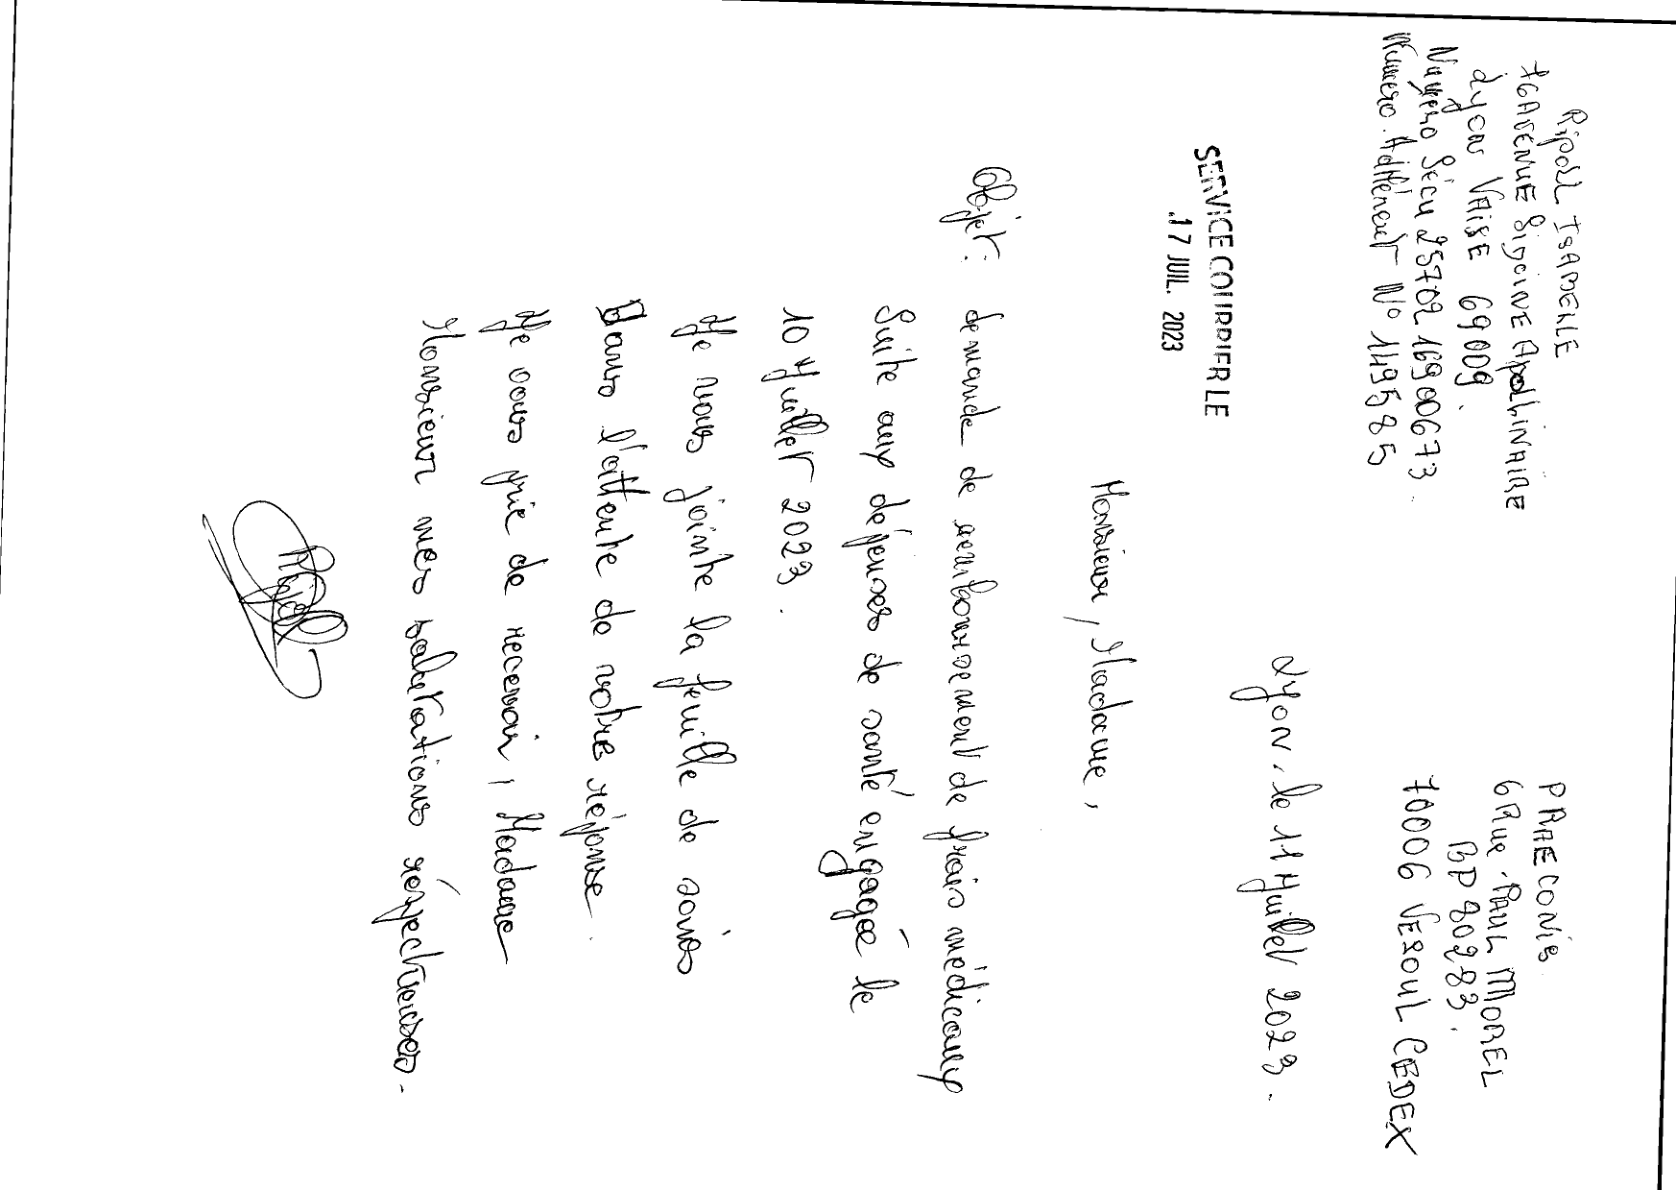 Ripoll ISABELLE
7GAVENUE Sidoine Apollinaire
Lyon VAISE 69009.
Numéro Sécu 25702 16900673.
Numéro Adhérent N° 1495885
PRAECONIS
6 Rue PAUL MOREL
BP 80283.
70006 VESOUL CEDEX
Lyon. le 11 Juillet 2023.
SERVICE COURRIER LE
17 JUIL. 2023
Monsieur, Madame,
Objet: demande de remboursement de frais médicaux
Suite aux dépenses de santé engagée le
10 Juillet 2023.
Je vous jointe la feuille de soins
Dans l'attente de votre réponse.
Je vous prie de recevoir, Madame
Monsieur mes salutations réspectueuses.
Ripoll